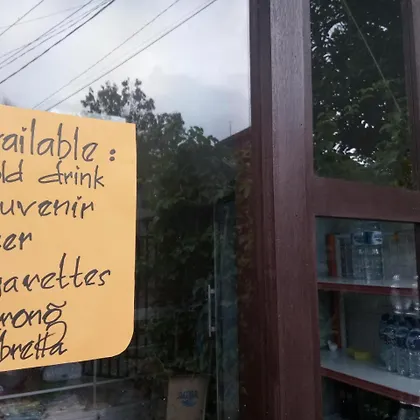 vailable :
old drink
uvenir
eer
garettes
arong
mbrella